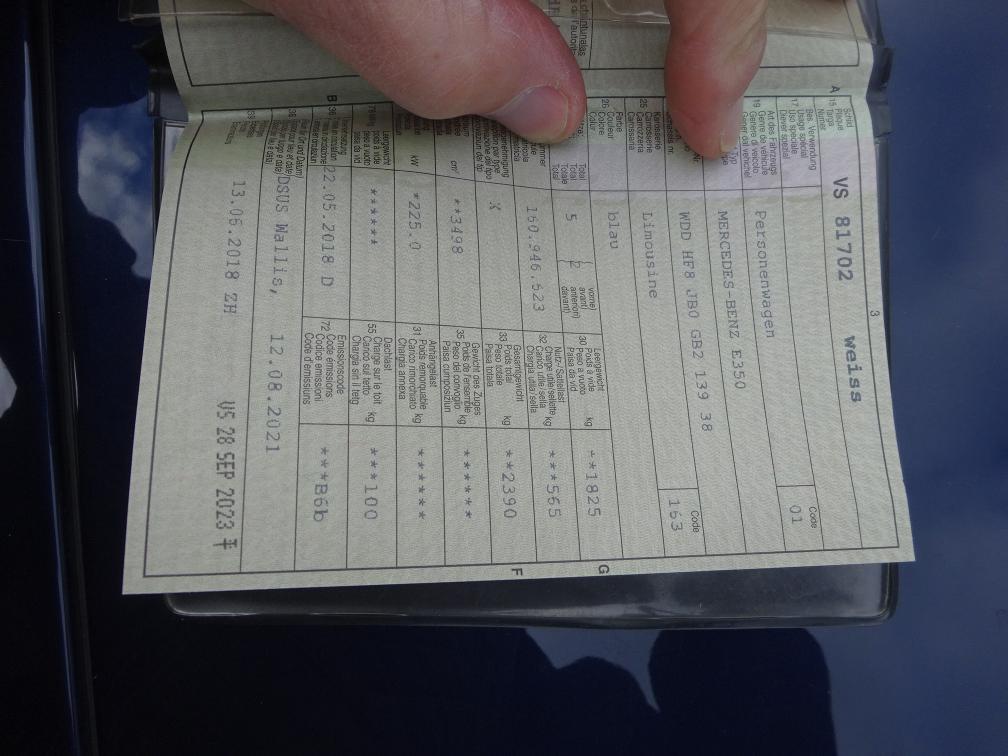 A
3
15 Plaque
Targa
VS 81702 weiss
Bes. Verwendung
17 Usage spécial
Uso speciale
Code
01
Art des Fahrzeugs
19 Genre de véhicule
Genere di veicolo
Personenwagen
MERCEDES-BENZ E350
Code
163
WDD HF8 JB0 GB2 139 38
25 Carrosserie
Carrozzeria
Limousine
26 Couleur
Colore
blau
Total
Totale
Total
5
vorne)
2 avant)
anteriori)
davant)
Leergewicht
30 Poids à vide kg
Peso a vuoto
Paisa da vid
**1825
160.946.523
Nutz-/Sattellast
32 Charge utile/sellette kg
Carico utile/sella
Chargia utila/sella
***565
X
Gesamtgewicht
33 Poids total kg
Peso totale
Paisa totala
**2390
F
G
cm³
**3498
Gewicht des Zuges
35 Poids de l'ensemble kg
Peso del convoglio
Paisa cumposiziun
******
kW
*225.0
Anhängelast
31 Poids remorquable kg
Carico rimorchiato
Chargia annexa
******
Leergewicht
poids à vide
******
Dachlast
55 Charge sur le toit kg
Carico sul tetto
Chargia sin il tetg
***100
B
36
22.05.2018 D
Emissionscode
72 Code émissions
Codice emissioni
Code d'emissiuns
***B6b
38
DSUS Wallis, 12.08.2021
39
13.06.2018 ZH
VS 28 SEP 2023